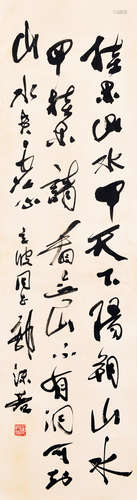 桂林山水甲天下陽朔山水
甲桂林請看無山不有洞可知
山水貴虛心 立波同志 郭沫若